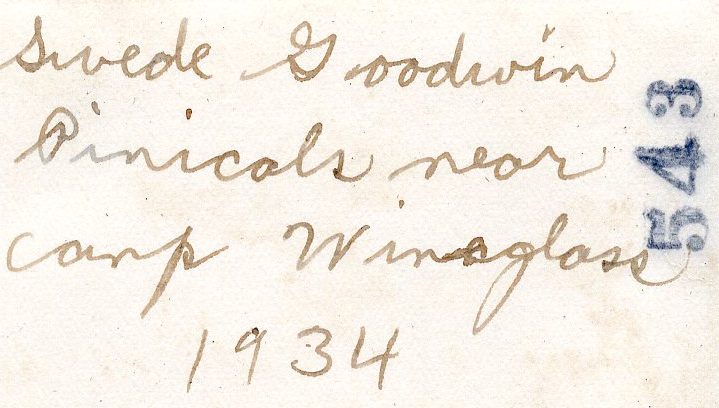 Swede Goodwin
Pinicals near
camp Wineglass
1934
543